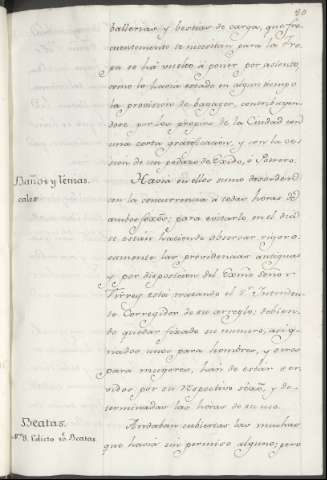 80
ballerias, y bestias de carga, que fre
cuentemente se necesitan para la Tro
pa se há vuelto á poner por asiento,
como lo havia estado en algun tiempo
la provision de bagages, contribuyen
dose por los propios de la Ciudad con
una corta gratificacion, y con la ce
sion de un pedazo de Exido, ó Potrero.
Baños y Temas
cales
Havia en ellos sumo desorden
con la concurrencia á todas horas de
ambos sexos; para evitarlo en el dia
se están haciendo observar rigoro
samente las providencias antiguas
y por disposicion del Exmo. Señor
Virrey está tratando el Sr. Intenden
te Corregidor de su arreglo, debien
do quedar fixado su numero, asig
nados unos para hombres, y otros
para mugeres, han de estar ser
vidos por su respectivo sexo, y de
terminadas las horas de su uso.
Beatas.
8. Edicto sre. Beatas
Andaban cubiertas las muchas
que havia sin permiso alguno; pero